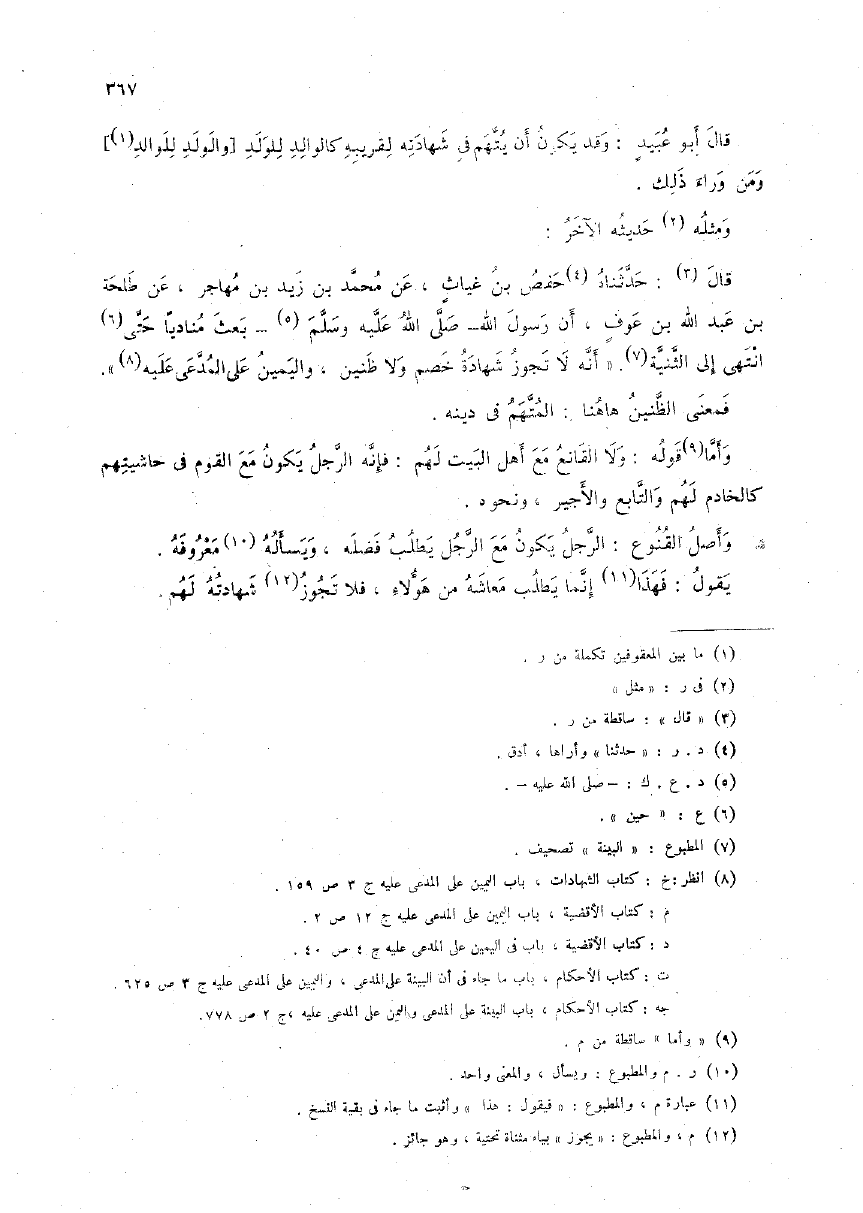 ٣٦٧
قالَ أَبو عُبَيدٍ : وَقد يَكونُ أَن يُتَّهَم فى شَهادَتِه لِقريبِهِ كالوالِدِ لِلوَلَدِ [والوَلَدِ لِلوالدِ(١)]
وَمَن وَراءَ ذَلِك .
وَمثلُه (٢) حَديثُه الآخَرُ :
قالَ (٣) : حَدَّثَناهُ (٤) حَفصُ بنُ غياثٍ ، عَن مُحمَّد بن زَيد بن مُهاجر ، عَن طَلحَة
بن عَبد الله بن عَوفٍ ، أَن رَسولَ الله – صَلَّى اللهُ عَلَيه وسَلَّمَ (٥) – بَعثَ مُنادياً حَتَّى (٦)
انْتَهى إلى الثَّنيَّة(٧). « أَنَّه لَا تَجوزُ شَهادَةُ خَصم وَلا ظَنين ، واليَمينُ عَلى المُدَّعَى عَلَيه(٨) ».
فَمعنَى الظَّنينُ هاهُنا : المُتَّهَمُ فى دينه .
وَأَمَّا(٩) قَولُه : وَلَا القَانعُ مَعَ أهل البَيت لَهُم : فإنَّه الرَّجلُ يَكونُ مَعَ القوم فى حاشيتِهم
كالخادم لَهُم وَالتَّابع والأَجير ، ونحوه .
* وَأَصلُ القُنُوع : الرَّجلُ يَكونُ مَعَ الرَّجُل يَطلُبُ فَضلَه ، وَيَسأَلُهُ (١٠) مَعْرُوفَهُ .
يَقولُ : فَهَذَا(١١) إنَّما يَطلُب مَعاشَهُ من هَؤُلاءِ ، فلا تَجُوزُ(١٢) شَهادتُهُ لَهُم .
(١) ما بين المعقوفين تكملة من ر .
(٢) فى ر : « مثل »
(٣) « قال » : ساقطة من ر .
(٤) د . ر : « حدثنا » وأراها ، أدق .
(٥) د . ع . ك : – صلى الله عليه – .
(٦) ع : « حين » .
(٧) المطبوع : « البينة » تصحيف .
(٨) انظر : خ : كتاب الشهادات ، باب اليمين على المدعى عليه ج ٣ ص ١٥٩ .
م : كتاب الأقضية ، باب اليمين على المدعى عليه ج ١٢ ص ٢ .
د : كتاب الأقضية ، باب فى اليمين على المدعى عليه ج ٤ ص ٤٠ .
ت : كتاب الأحكام ، باب ما جاء فى أن البينة على المدعى ، واليمين على المدعى عليه ج ٣ ص ٦٢٥ .
جه : كتاب الأحكام ، باب البينة على المدعى واليمين على المدعى عليه ، ج ٢ ص ٧٧٨.
(٩) « وأما » ساقطة من م .
(١٠) ر . م والمطبوع : ويسأل ، والمعنى واحد .
(١١) عبارة م ، والمطبوع : « فيقول : هذا » وأثبت ما جاء فى بقية النسخ .
(١٢) م ، والمطبوع : « يجوز » بياء مثناة تحتية ، وهو جائز .